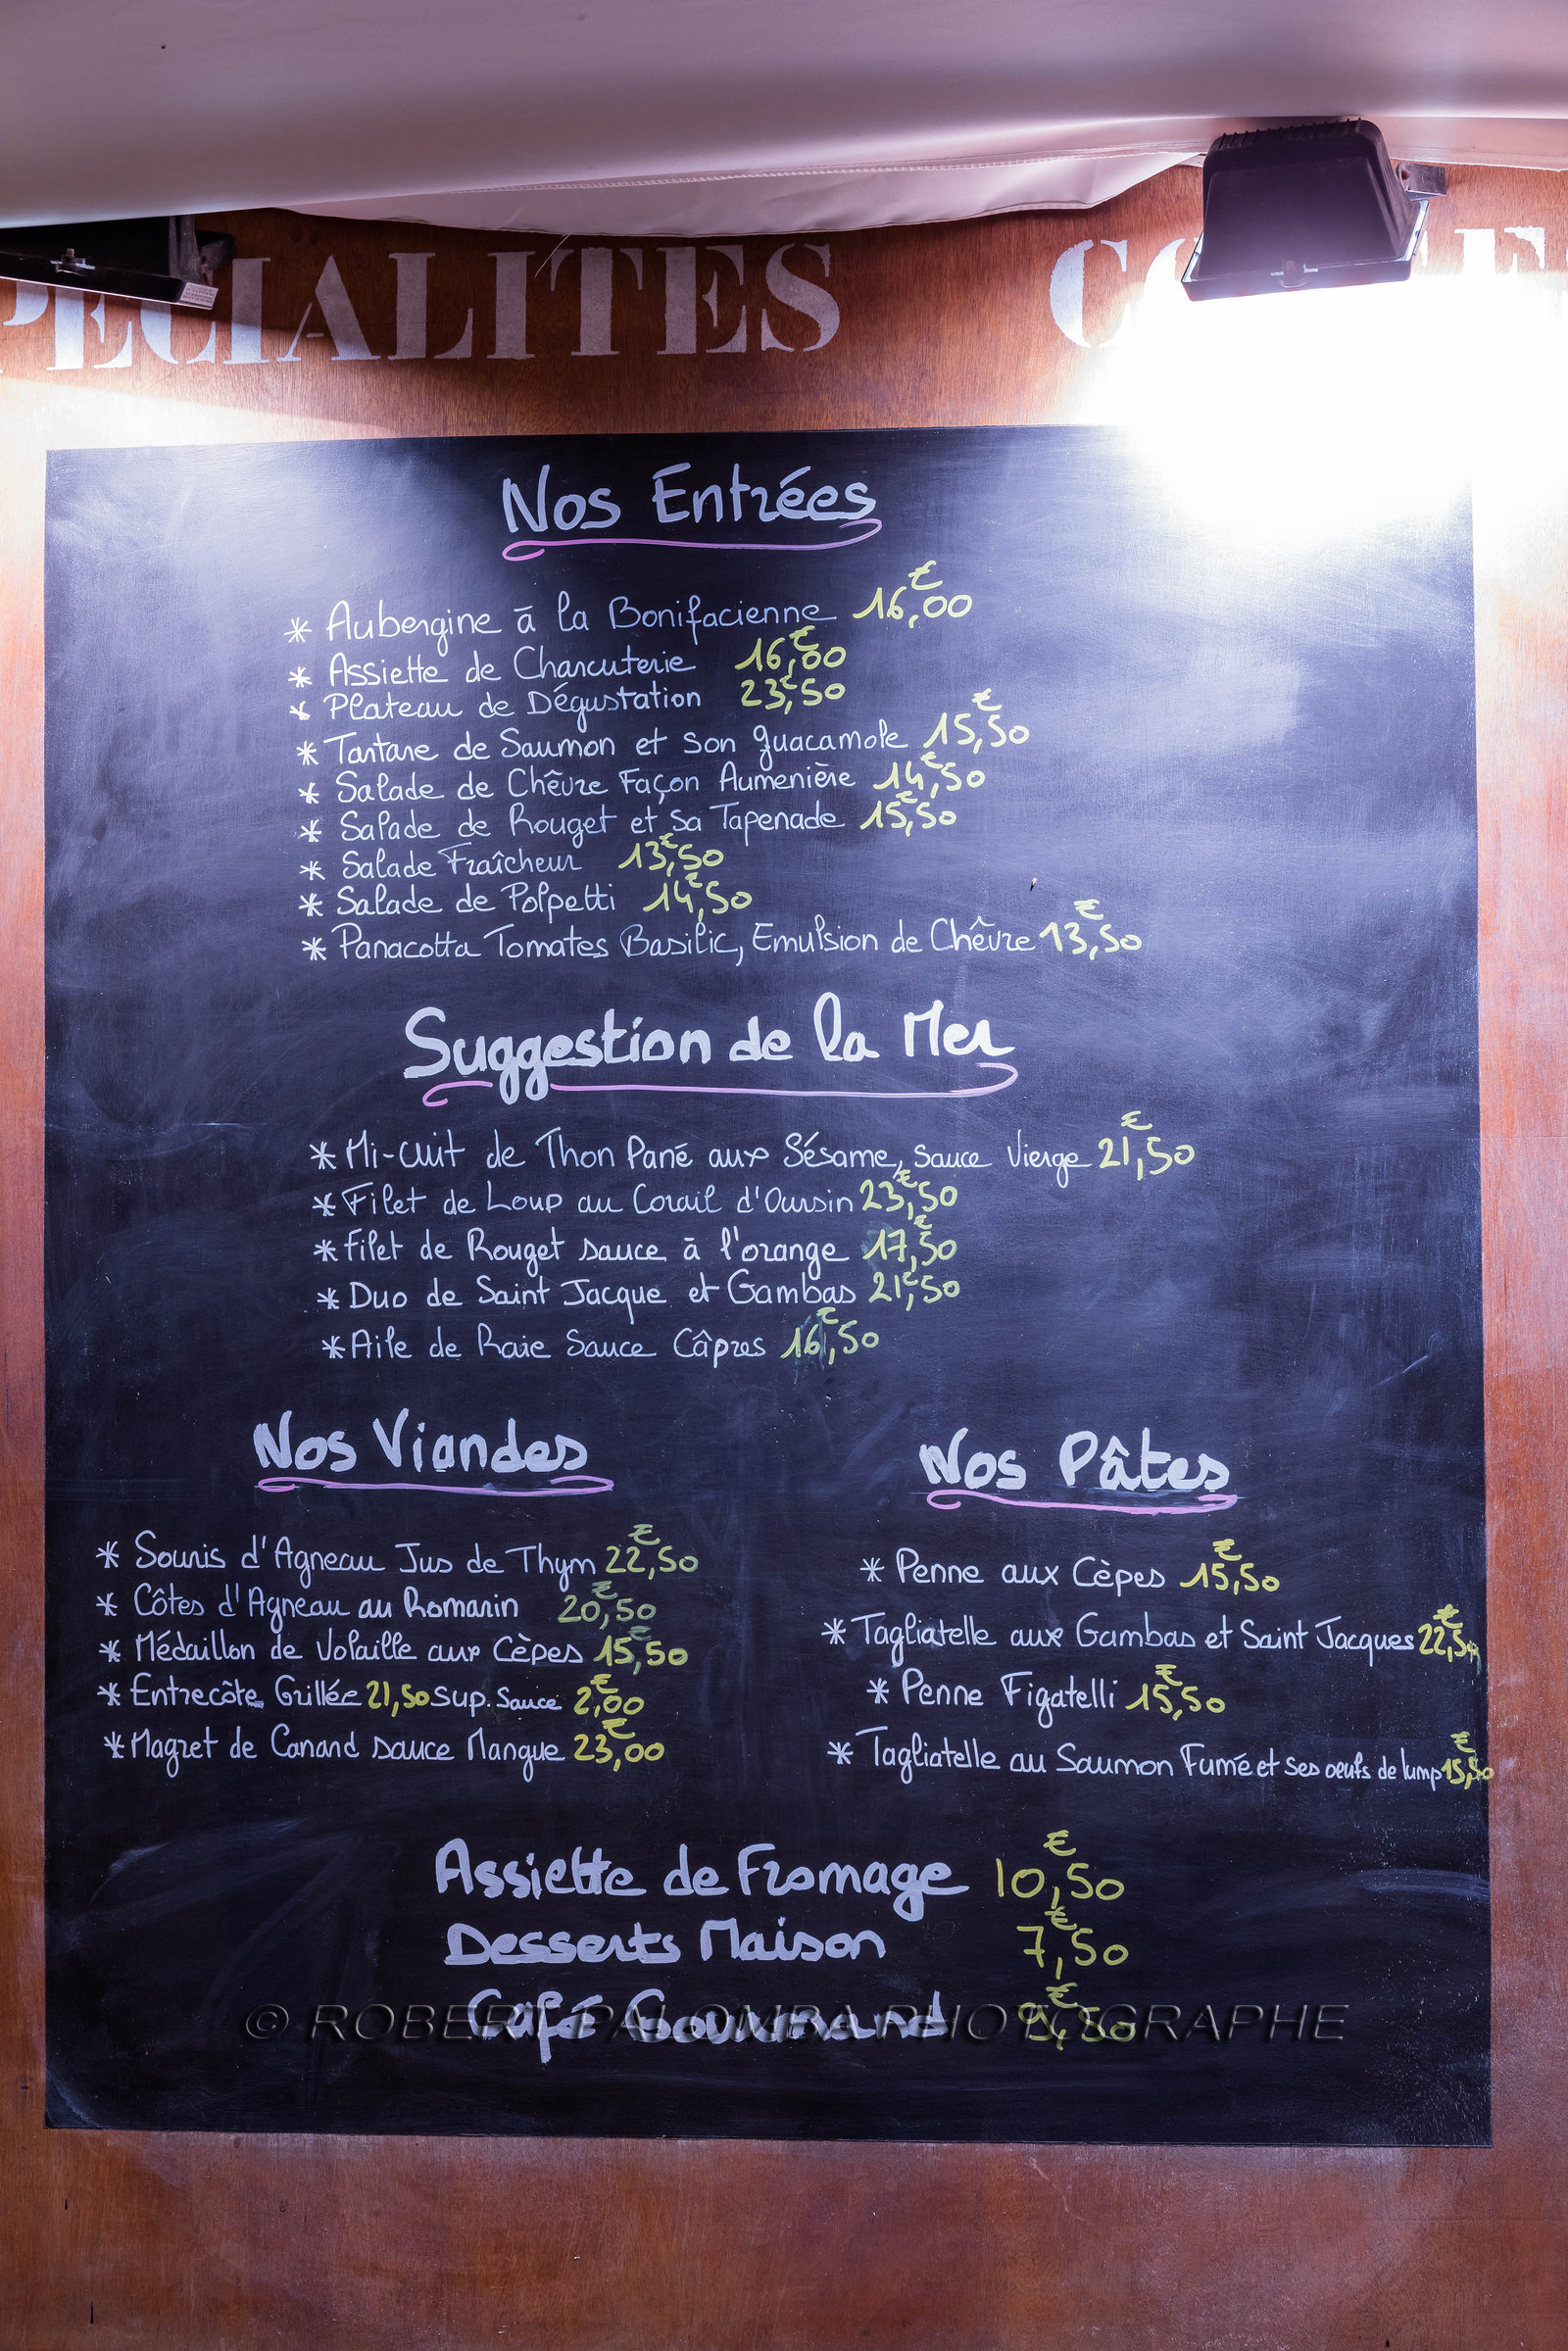 PECIALITES
Nos Entrées
* Aubergine à la Bonifacienne 16,00€
* Assiette de Charcuterie 16,00€
* Plateau de Dégustation 23,50€
* Tartare de Saumon et son guacamole 15,50€
* Salade de Chêvre Façon Aumenière 14,50€
* Salade de Rouget et sa Tapenade 15,50€
* Salade Fraîcheur 13,50€
* Salade de Polpetti 14,50€
* Panacotta Tomates Basilic, Emulsion de Chêvre 13,50€
Suggestion de la Mer
* Mi-cuit de Thon Pané aux Sésame, sauce Vierge 21,50€
* Filet de Loup au Corail d'Oursin 23,50€
* Filet de Rouget sauce à l'orange 17,50€
* Duo de Saint Jacque et Gambas 21,50€
* Aile de Raie Sauce Câpres 16,50€
Nos Viandes
* Souris d'Agneau Jus de Thym 22,50€
* Côtes d'Agneau au Romarin 20,50€
* Médaillon de Volaille aux Cèpes 15,50€
* Entrecôte Grillée 21,50 Sup. Sauce 2,00€
* Magret de Canard sauce Mangue 23,00€
Nos Pâtes
* Penne aux Cèpes 15,50€
* Tagliatelle aux Gambas et Saint Jacques 22,50€
* Penne Figatelli 15,50€
* Tagliatelle au Saumon Fumé et ses oeufs de lump 15,50€
Assiette de Fromage 10,50€
Desserts Maison 7,50€
Café Gourmand 9,50€
© ROBERT PALOMBA PHOTOGRAPHE